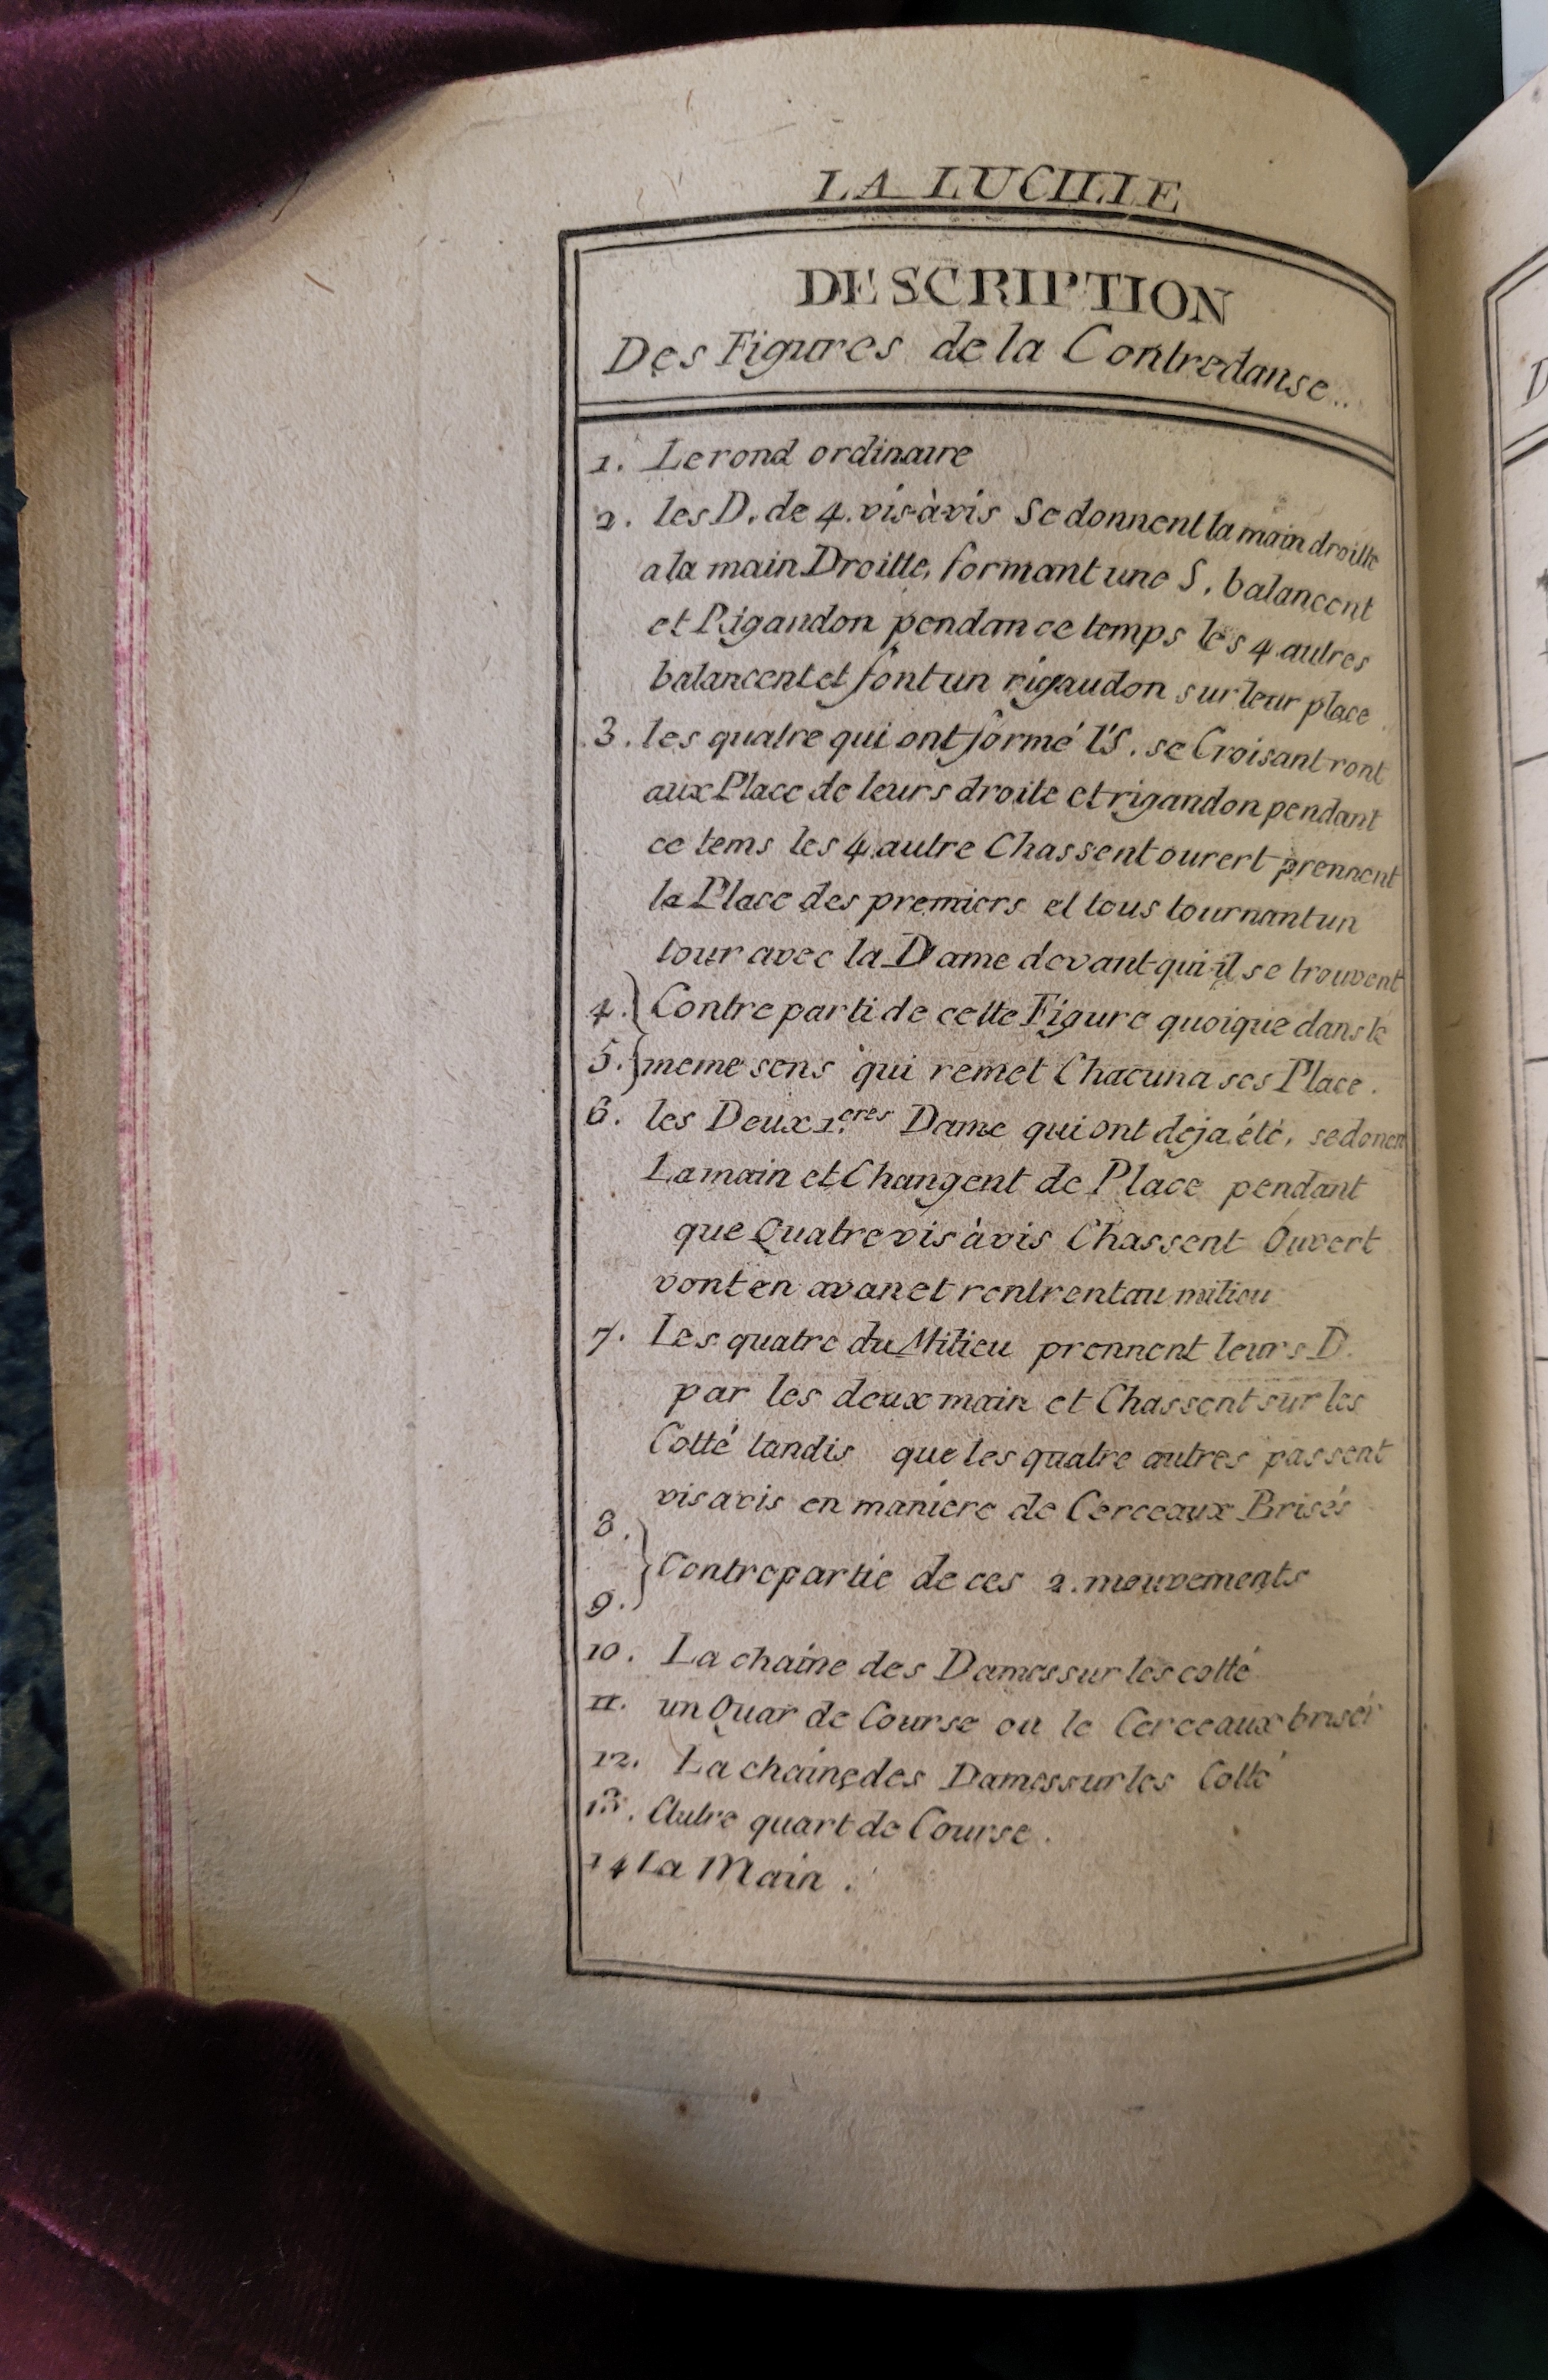 LA LUCILLE
DESCRIPTION
Des Figures de la Contredanse..
1. Le rond ordinaire
2. les D. de 4. vis-à-vis Se donnent la main droitte
a la main Droitte, formant une S. balancent
et Rigaudon pendan ce temps les 4 autres
balancent et font un rigaudon sur leur place
3. les quatre qui ont formé l'S. se Croisant vont
aux Place de leurs droite et rigaudon pendant
ce tems les 4 autre Chassent ouvert prennent
la Place des premiers et tous tournant un
tour avec la Dame devant qui il se trouvent
4. } Contre parti de cette Figure quoique dans le
5. } meme sens qui remet Chacun a ses Place.
6. les Deux 1.eres Dame qui ont deja été, se donent
La main et Changent de Place pendant
que Quatre vis à vis Chassent Ouvert
vont en avan et rentrent au milieu
7. Les quatre du Milieu prennent leurs D.
par les deux main et Chassent sur les
Cotté tandis que les quatre autres passent
vis a vis en maniere de Cerceaux Brisés
8.
} Contrepartie de ces 2. mouvements
9.
10. La chaine des Dames sur les cotté
11. un Quar de Course ou le Cerceaux briser
12. La chaine des Dames sur les Cotté
13. Autre quart de Course.
14 La Main.